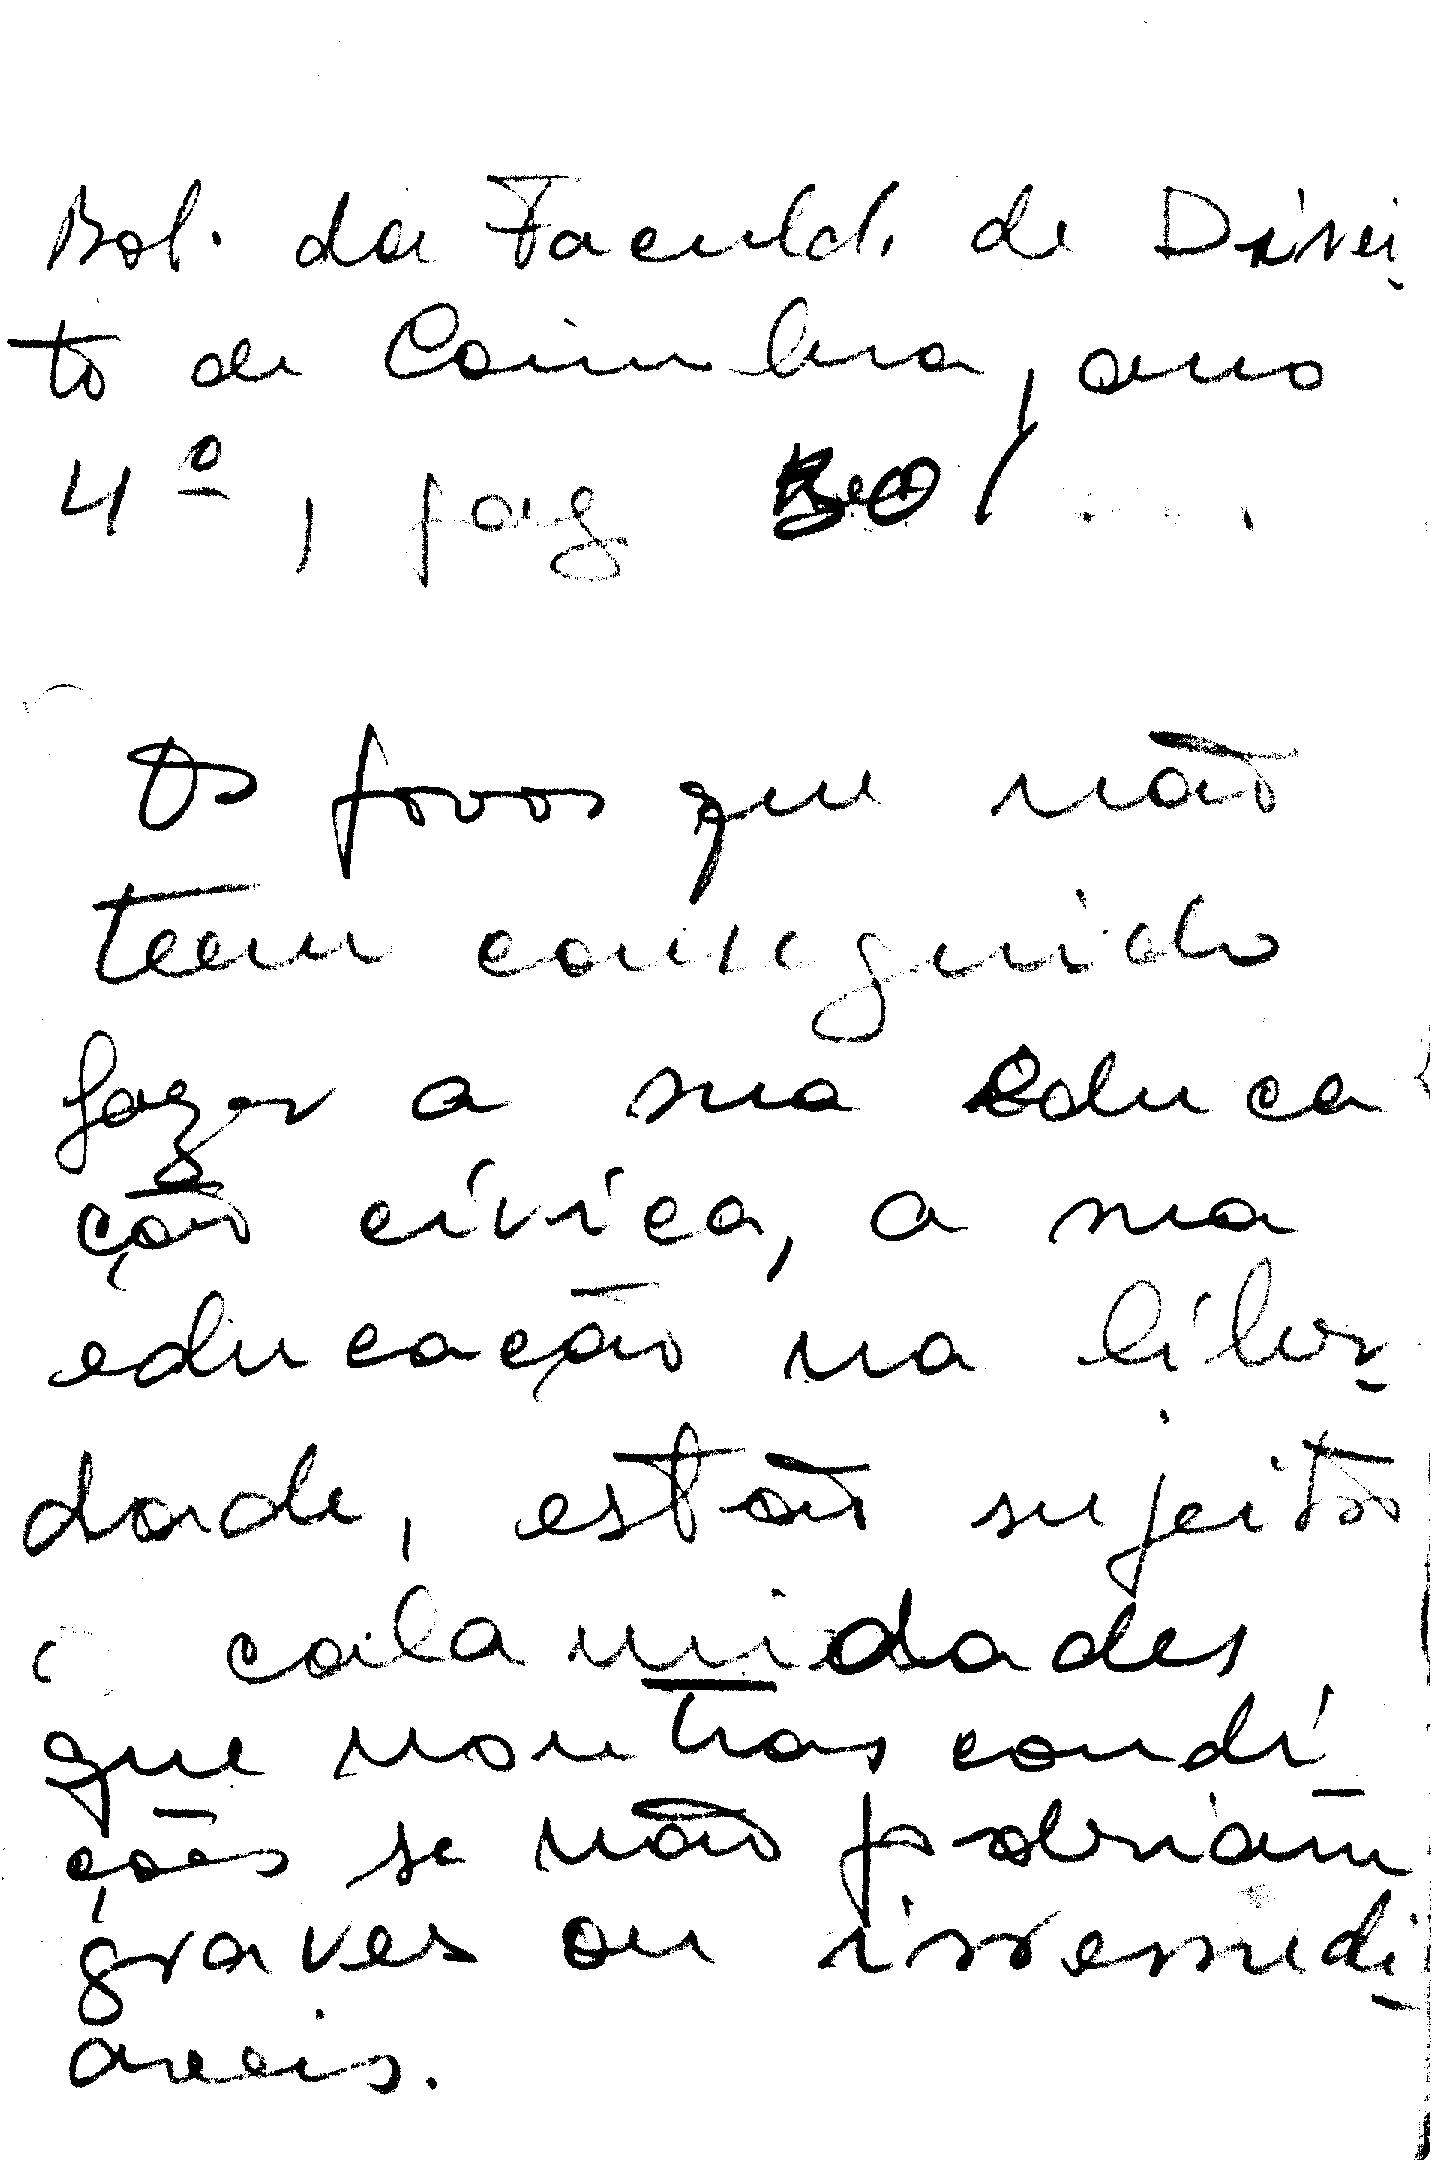 Bol. da Faculd. de Direi-
to de Coimbra, ano
4º, pag
Os povos que não
teem conseguido
fazer a sua educa
ção cívica, a sua
educação na liber-
dade, estão sujeitos
a calamidades
que noutras condi-
ções se não
graves ou irremedi-
aveis.